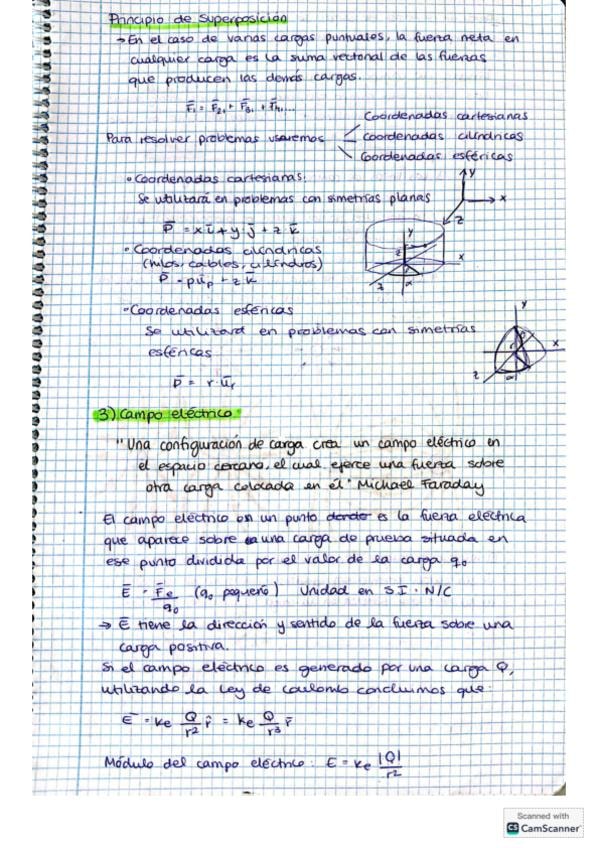 Principio de superposición
→ En el caso de varias cargas puntuales, la fuerza neta en
cualquier carga es la suma vectorial de las fuerzas
que producen las demás cargas.
F̄₁ = F̄₂₁ + F̄₃₁ + F̄₄₁...
Coordenadas cartesianas
Para resolver problemas usaremos
Coordenadas cilíndricas
Coordenadas esféricas
• Coordenadas cartesianas.
Se utilizará en problemas con simetrías planas
P̄ = x ī + y · j̄ + z · k̄
• Coordenadas cilíndricas
(hilos, cables, cilindros)
P̄ = ρūρ + z k̄
• Coordenadas esféricas
Se utilizará en problemas con simetrías
esféricas
P̄ = r · ūr
3) Campo eléctrico
"Una configuración de carga crea un campo eléctrico en
el espacio cercano, el cual ejerce una fuerza sobre
otra carga colocada en él" Michael Faraday
El campo eléctrico en un punto es la fuerza eléctrica
que aparece sobre una carga de prueba situada en
ese punto dividida por el valor de la carga q₀
Ē = F̄e / q₀ (q₀ pequeño) Unidad en SI · N/C
→ Ē tiene la dirección y sentido de la fuerza sobre una
carga positiva.
Si el campo eléctrico es generado por una carga Q,
utilizando la Ley de Coulomb concluimos que:
Ē = ke Q/r² r̂ = ke Q/r³ r̄
Módulo del campo eléctrico: E = ke |Q|/r²
Scanned with
CS CamScanner